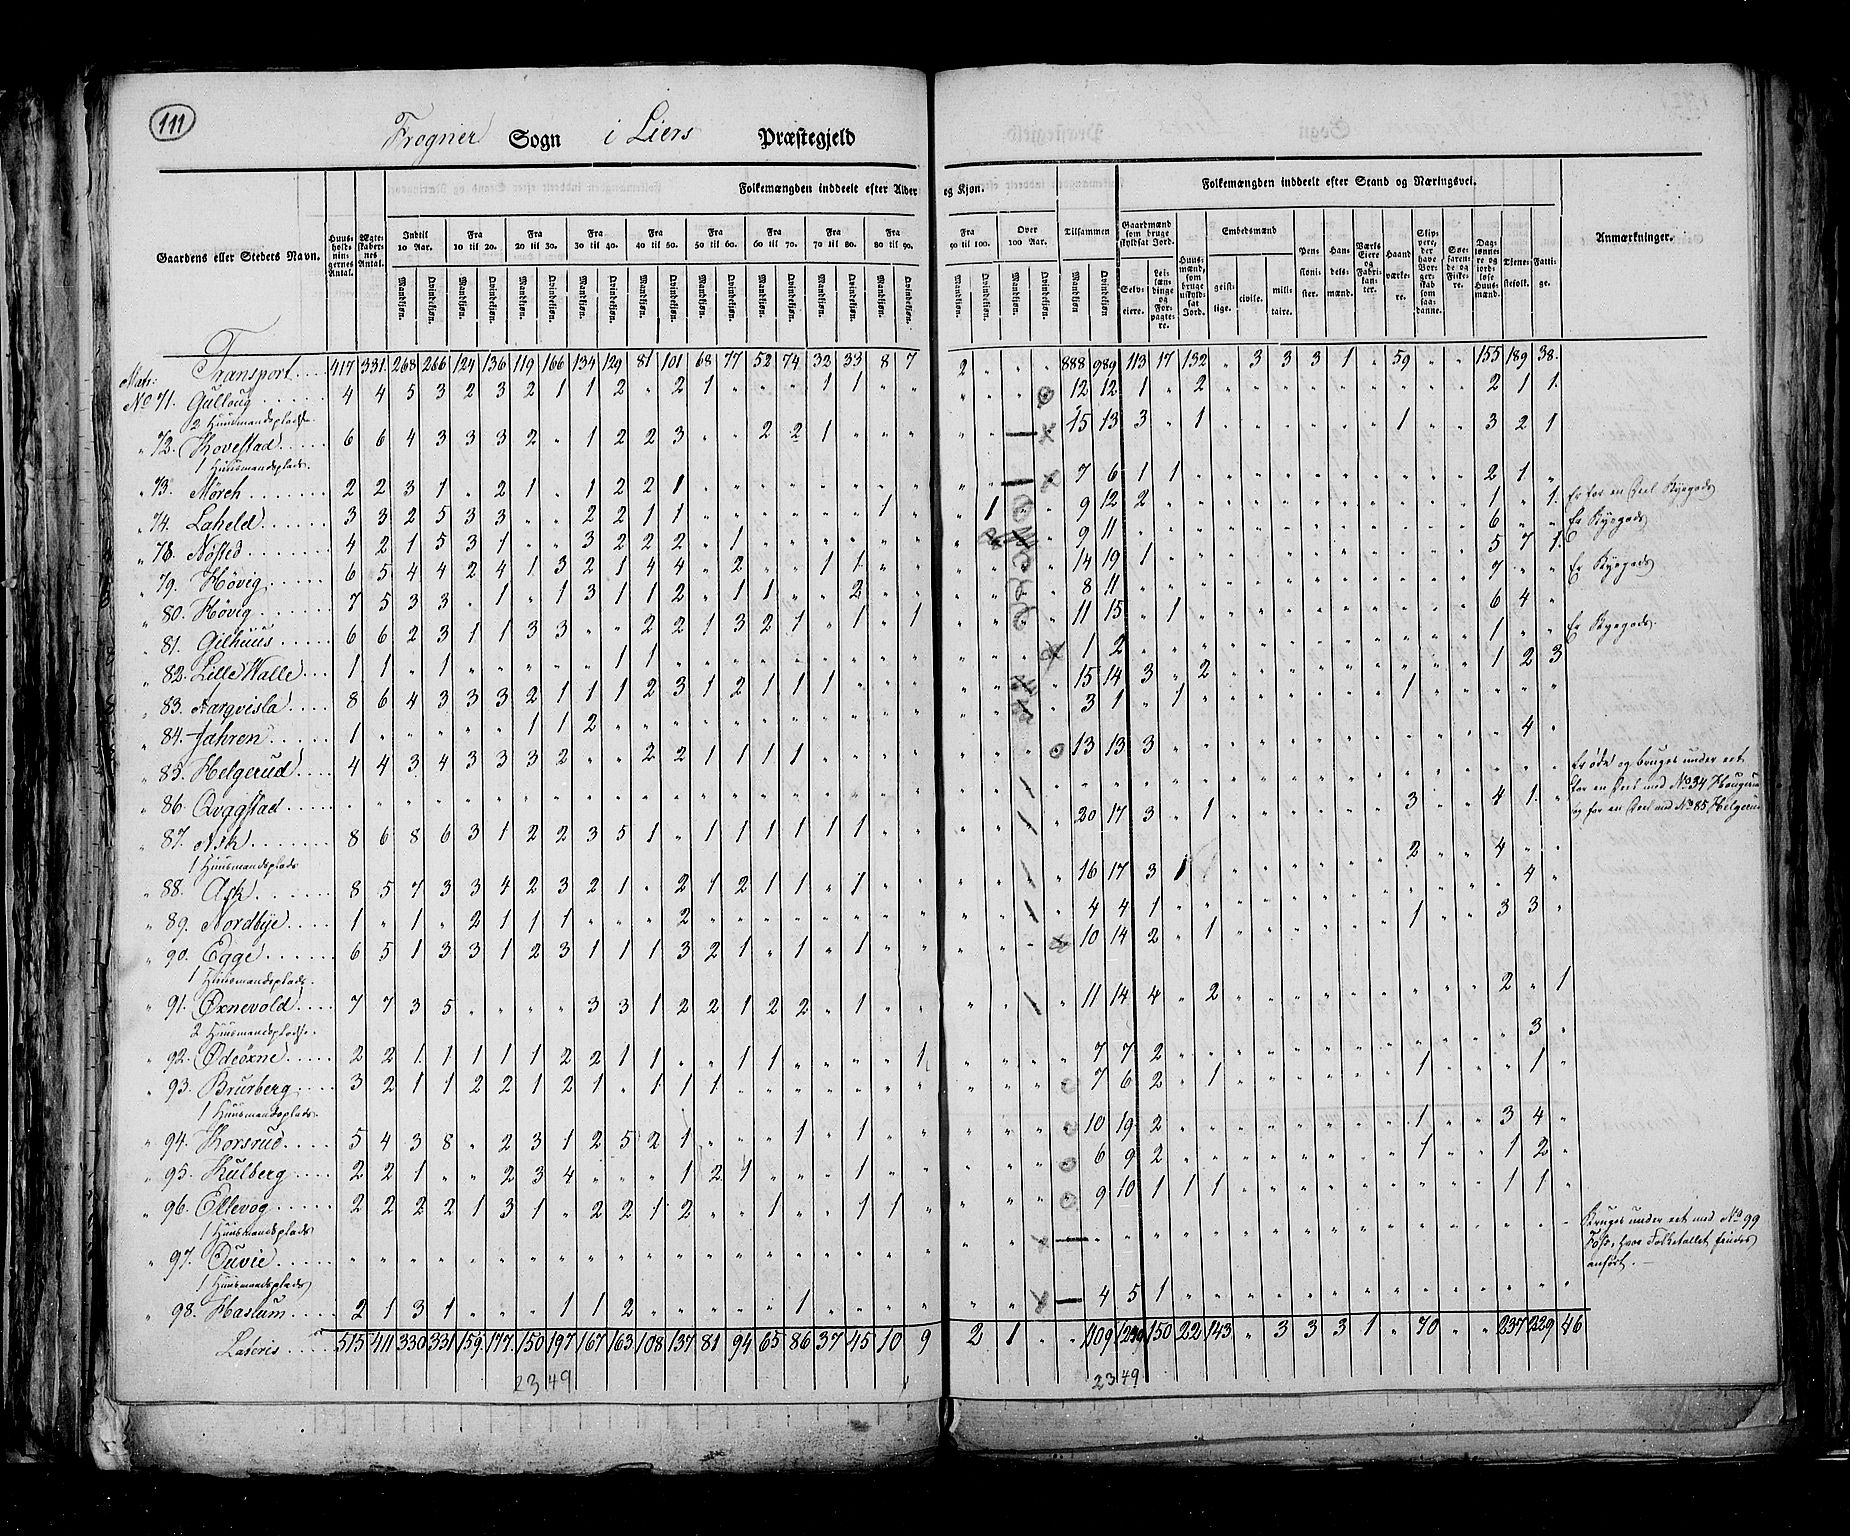 111
Frogner Sogn i Liers Præstegjeld
Gaardens eller Stedets Navn.
Huusholdningernes Antal.
Ægteskabernes Antal.
Folkemængden inddeelt efter Alder og Kjøn.
Indtil 10 Aar. Fra 10 til 20. Fra 20 til 30. Fra 30 til 40. Fra 40 til 50. Fra 50 til 60. Fra 60 til 70. Fra 70 til 80. Fra 80 til 90. Fra 90 til 100. Over 100 Aar. Tilsammen
Mandkjøn. Qvindekjøn.
Folkemængden inddeelt efter Stand og Næringsvei.
Gaardmænd som bruge skyldsat Jord.
Selveiere. Leilændinge og Forpagtere.
Huusmænd, som bruge uskyldsat Jord.
Embedsmænd
geistlige. civile. militaire.
Pensionister. Handelsmænd. Værks Eiere og Fabrikanter. Haandværkere.
Søefarende og Fiskere. Dagslønnere og jordløse Huusmænd. Tjenestefolk. Fattige.
Anmærkninger.
Transport 417 331 268 266 124 136 119 166 134 129 81 101 68 77 52 74 32 33 8 7 2 " " " 888 989 113 17 132 " 3 3 3 1 " 59 " " 155 189 38.
Matr:
No 71. Gulloug 4 4 5 3 2 3 2 1 1 2 " 2 1 " " " 1 1 " " 12 12 1 " 2 2 1 1.
2 Huusmandspladse.
" 72. Kovestad 6 6 4 3 3 3 2 " 1 2 2 3 " " 2 2 1 " " " 15 13 3 " 1 1 3 2 1
1 Huusmandsplads.
" 73. Mörch 2 2 3 1 " 2 1 " 1 2 2 1 7 6 1 1 2 1 "
" 74. Laheld 3 3 2 5 3 3 " " 2 2 1 1 " " " " " " 1 " " 1 9 12 2 1 " 1. Er for en Deel Kyegods
" 78. Nösted 4 2 1 5 3 1 " " 3 2 2 2 " 1 9 11 6 " " Er Kyegods
" 79. Hövig 6 5 4 4 2 4 1 3 2 1 4 4 " 2 " " 1 1 " " 14 19 1 5 7 1.
" 80. Hövig 7 5 3 3 " 1 " 1 3 1 1 2 " 1 1 " " 2 " " 8 11 7 " " Er Kyegods
" 81. Gilhuus 6 6 2 3 1 1 3 3 " " 2 2 1 3 2 1 " 1 " 1 11 15 " 1 6 4 "
" 82. Lille Walle 1 1 " 1 " " " " " 1 1 1 2 1 " " Er Kyegods.
" 83. 8 6 4 3 3 3 2 1 1 1 2 3 1 2 1 1 1 15 14 3 " 2 1 2 3
" 84. Jahren 1 " " " " " 1 1 2 3 1 " 1 1
" 85. Helgerud 4 4 3 4 3 3 3 2 " " 2 2 1 1 1 1 13 13 3 4 "
" 86. Qvggstad Er øde og bruges under eet
for en Deel med No 34 Haugerud
og for en Deel med No 85 Helgerud
" 87. Ask 8 6 8 6 3 1 2 2 3 5 1 " 1 1 1 1 1 1 " " 20 17 3 " 1 3 4 1. "
1 Huusmandsplads
" 88. Ask 8 5 7 3 3 4 2 3 2 1 " 2 1 2 1 1 " 1 " " 16 17 3 1 2 4 " "
" 89. Nordbye 1 " 1 " 2 1 1 1 " " " 2 4 4 1 4 "
" 90. Egge 6 5 1 3 3 1 2 3 1 1 1 3 2 1 " 1 " 1 " " 10 14 2 " 1 1 3 3 "
1 Huusmandsplads.
" 91. Öxnevold 7 7 3 5 " " " " 3 3 1 2 2 1 2 2 " 1 " " 11 14 4 " 2 2 " 1
2 Huusmandspladse.
" 92. Ödeöxne 2 2 1 1 1 1 1 2 2 1 1 " " 1 1 " " " " 1 7 7 2 3 "
" 93. Brurberg 3 2 1 1 2 2 1 2 1 " 1 1 1 7 6 2 " 1 1 " 1 "
1 Huusmandsplads.
" 94. Korsrud 5 4 3 8 " 2 3 1 2 5 2 1 " " " 1 " 1 " " 10 19 2 1 3 4 "
" 95. Kulberg 2 2 1 " " 2 3 4 " " " 1 2 1 " " " 1 " " 6 9 2 1 1 2 "
" 96. Ellevog 2 2 2 2 1 3 1 " 2 2 1 2 " " 1 " " 1 1 " 9 10 1 1 1 1 1 "
1 Huusmandsplads
" 97. Tuvie Bruges under eet med No 99
Foss, hvor Folketallet findes
anført. —
1 Huusmandsplads
" 98. Haslum 2 1 3 1 " " " 1 1 2 " " " " " 1 " " " " 4 5 1
Lateris 515 411 330 331 159 177 150 197 167 163 108 137 81 94 65 86 37 45 10 9 2 1 " " 1109 1240 150 22 143 " 3 3 3 1 " 70 " " 237 229 46
2349 2349